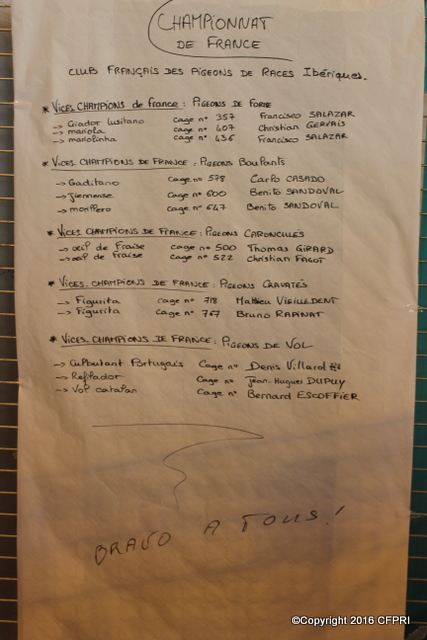 CHAMPIONNAT
DE FRANCE
CLUB FRANÇAIS DES PIGEONS DE RACES IBÉRIQUES.
* VICES CHAMPIONS de france : PIGEONS DE FORME
-> Giador lusitano cage n° 357 Francisco SALAZAR
-> mariola cage n° 407 Christian GERVAIS
-> mariolinha cage n° 436 Francisco SALAZAR
* VICES CHAMPIONS DE FRANCE : PIGEONS BOULANTS
-> Gaditano cage n° 578 Carlo CASADO
-> Jiennense cage n° 600 Benito SANDOVAL
-> morillero cage n° 647 Benito SANDOVAL
* VICES CHAMPIONS DE FRANCE : PIGEONS CARONCULÉS
-> œil de fraise cage n° 500 Thomas GIRARD
-> œil de fraise cage n° 522 Christian FAGOT
* VICES CHAMPIONS DE FRANCE : PIGEONS CRAVATÉS
-> Figurita cage n° 718 Mathieu VIEILLEDENT
-> Figurita cage n° 767 Bruno RAPINAT
* VICES CHAMPIONS DE FRANCE : PIGEONS DE VOL
-> Culbutant Portugais Cage n° Denis Villard
-> Rafeño Cage n° Jean-Hugues DUPUY
-> Vol catalan Cage n° Bernard ESCOFFIER
BRAVO A TOUS !
©Copyright 2016 CFPRI